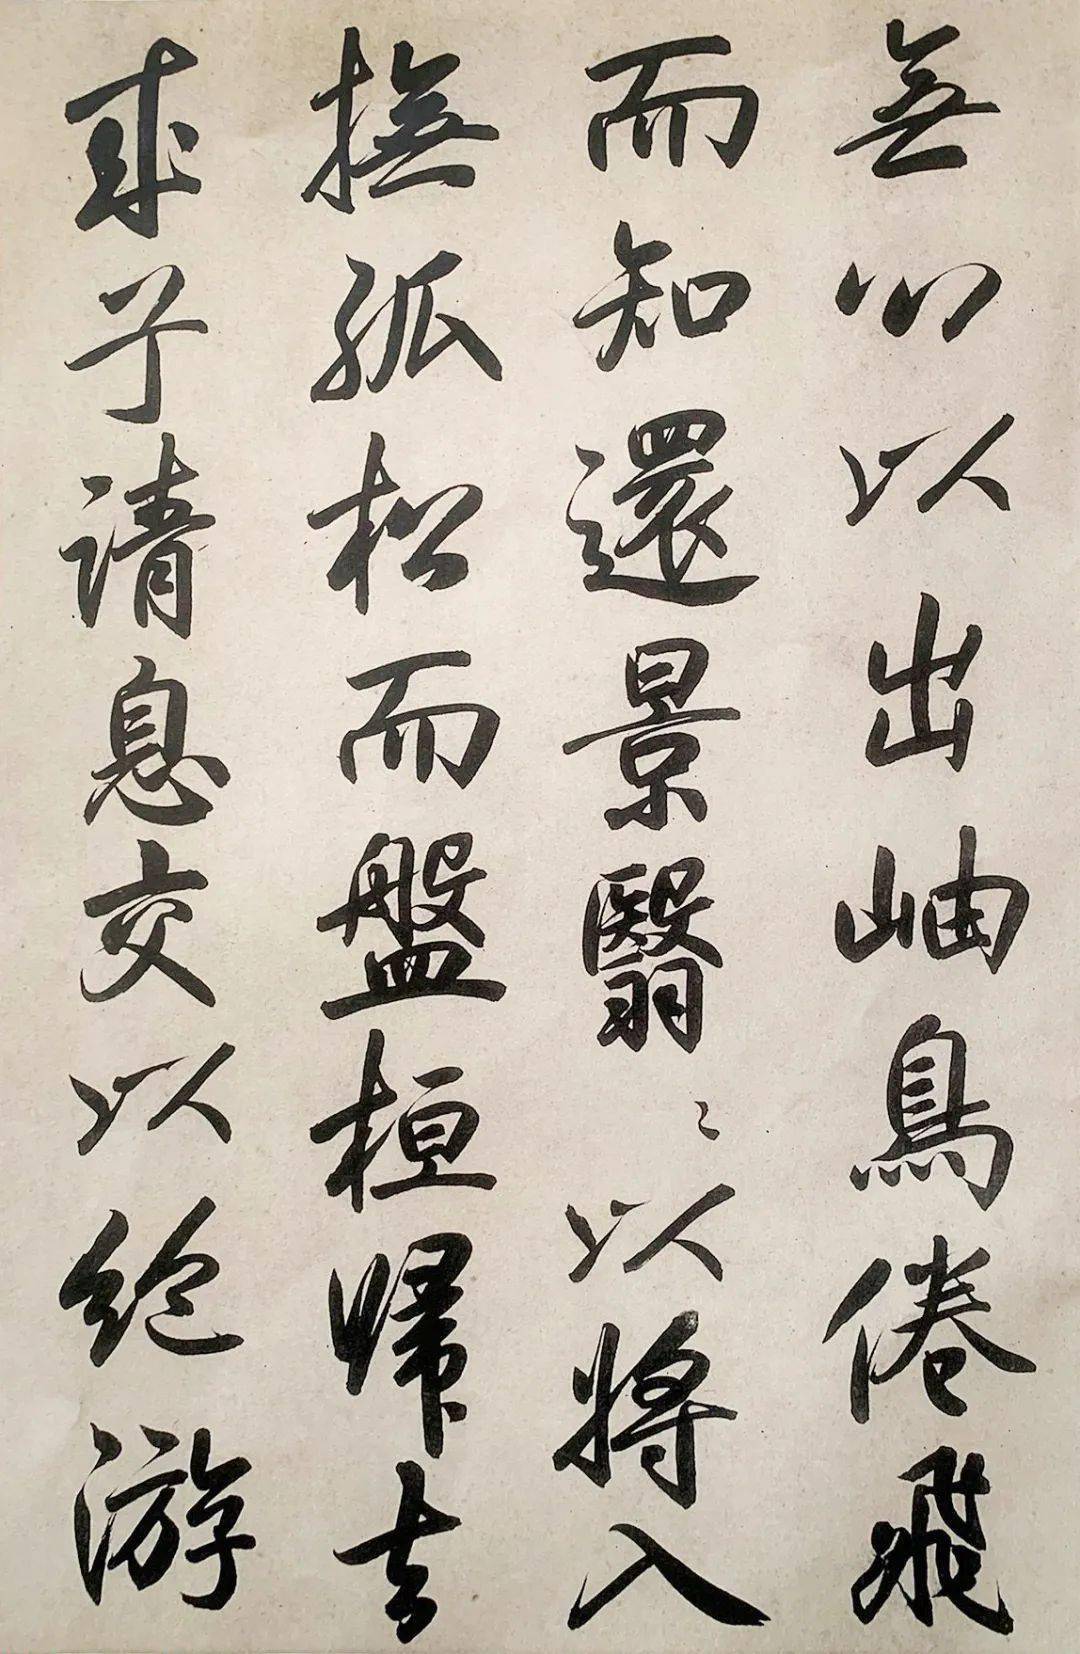 無心以出岫鳥倦飛
而知還景翳〻以將入
撫孤松而盤桓歸去
來兮請息交以絶游